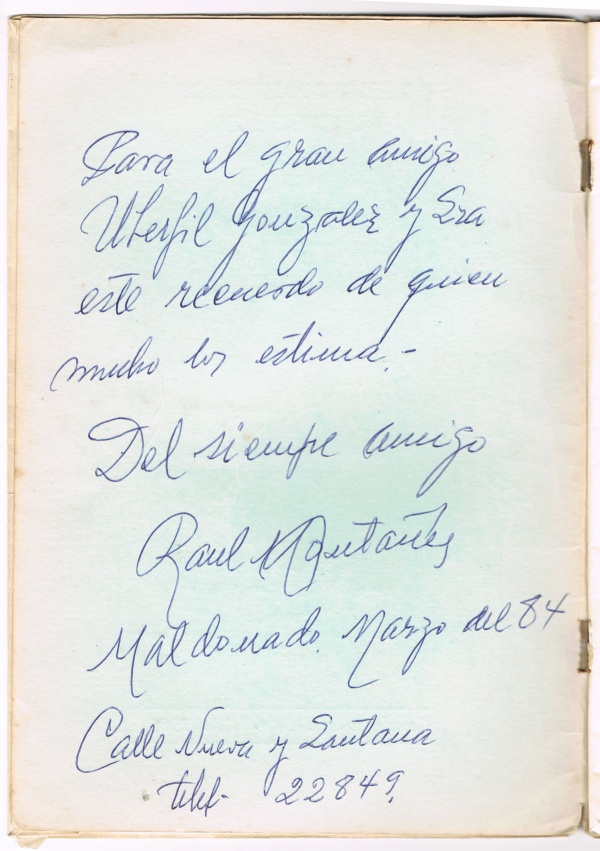 Para el gran amigo
Uberfil Gonzalez y Sra
este recuerdo de quien
mucho los estima.-
Del siempre amigo
Raul Montañes
Maldonado. Marzo del 84
Calle Nueva y Santana
telef- 22849.